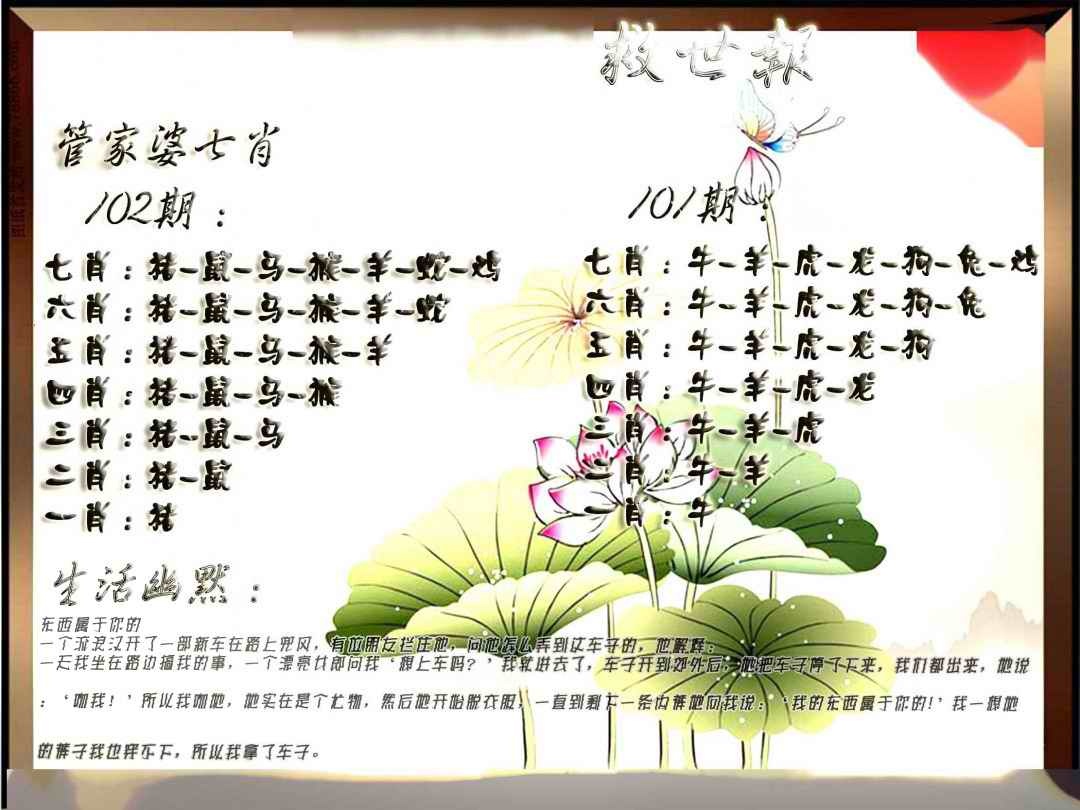 救世報
管家婆七肖
102期：
七肖：猪-鼠-马-猴-羊-蛇-鸡
六肖：猪-鼠-马-猴-羊-蛇
五肖：猪-鼠-马-猴-羊
四肖：猪-鼠-马-猴
三肖：猪-鼠-马
二肖：猪-鼠
一肖：猪
101期：
七肖：牛-羊-虎-龙-狗-兔-鸡
六肖：牛-羊-虎-龙-狗-兔
五肖：牛-羊-虎-龙-狗
四肖：牛-羊-虎-龙
三肖：牛-羊-虎
二肖：牛-羊
一肖：牛
生活幽默：
东西属于你的
一个流浪汉开了一部新车在路上兜风，有位朋友拦住他，问他怎么弄到这车子的，他解释：
一天我坐在路边搞我的事，一个漂亮女郎问我‘想上车吗？’我就进去了，车子开到郊外后，她把车子停了下来，我们都出来，她说
：‘吻我！’所以我吻她，她实在是个尤物，然后她开始脱衣服，一直到剩下一条内裤她向我说：‘我的东西属于你的!’我一想她
的裤子我也穿不下，所以我拿了车子。